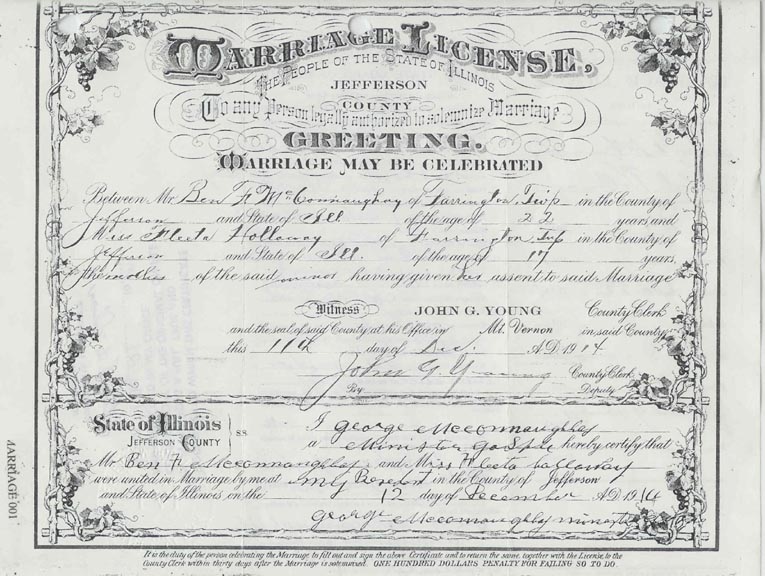 MARRIAGE LICENSE,
THE PEOPLE OF THE STATE OF ILLINOIS
JEFFERSON
COUNTY
To any Person legally authorized to solemnize Marriage
GREETING.
MARRIAGE MAY BE CELEBRATED
Between Mr. Ben F. McConnaughay of Farrington Twp in the County of
Jefferson and State of Ill of the age of years and
Miss Fleeta Hollaway of Farrington Twp in the County of
Jefferson and State of Ill. of the age of 17 years,
the mother of the said minor having given her assent to said Marriage
Witness JOHN G. YOUNG County Clerk
and the seal of said County at his Office in Mt. Vernon in said County
this 11th day of Dec. A.D. 1914.
John G. Young County Clerk
By Deputy
State of Illinois
JEFFERSON COUNTY ss
I george Mcconnaughhay
a Minister gospel hereby certify that
Mr Ben F. Mcconnaughhay and Miss Fleeta hollaway
were united in Marriage by me at my in the County of Jefferson
and State of Illinois, on the 12 day of december A.D. 1914
george Mcconnaughhay minister
It is the duty of the person celebrating the Marriage to fill out and sign the above Certificate and to return the same, together with the License, to the
County Clerk within thirty days after the Marriage is solemnized. ONE HUNDRED DOLLARS PENALTY FOR FAILING SO TO DO.
MARRIAGE 001